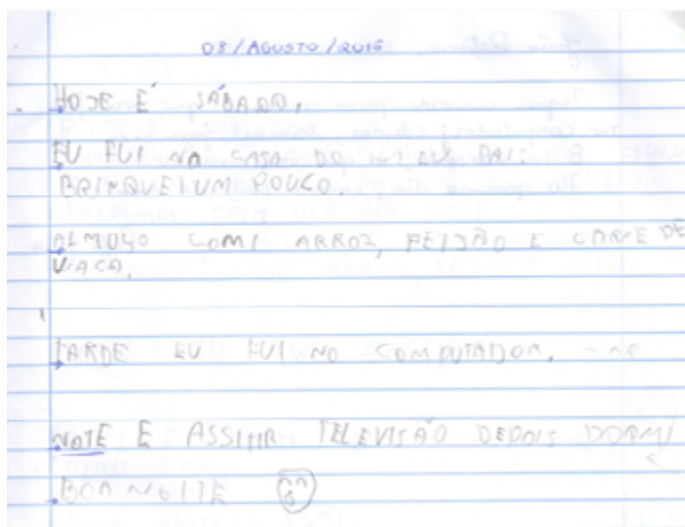 08/AGOSTO/2015
HOJE É SÁBADO,
EU FUI NA SASA DO MEU PAI:
BRINQUEI UM POUCO.
ALMOÇO COMI ARROZ, FEIJÃO E CARNE DE
VACA.
TARDE EU FUI NO COMPUTADOR.
NOTE E ASSITIR TELEVISÃO DEPOIS DORMI
BOA NOITE